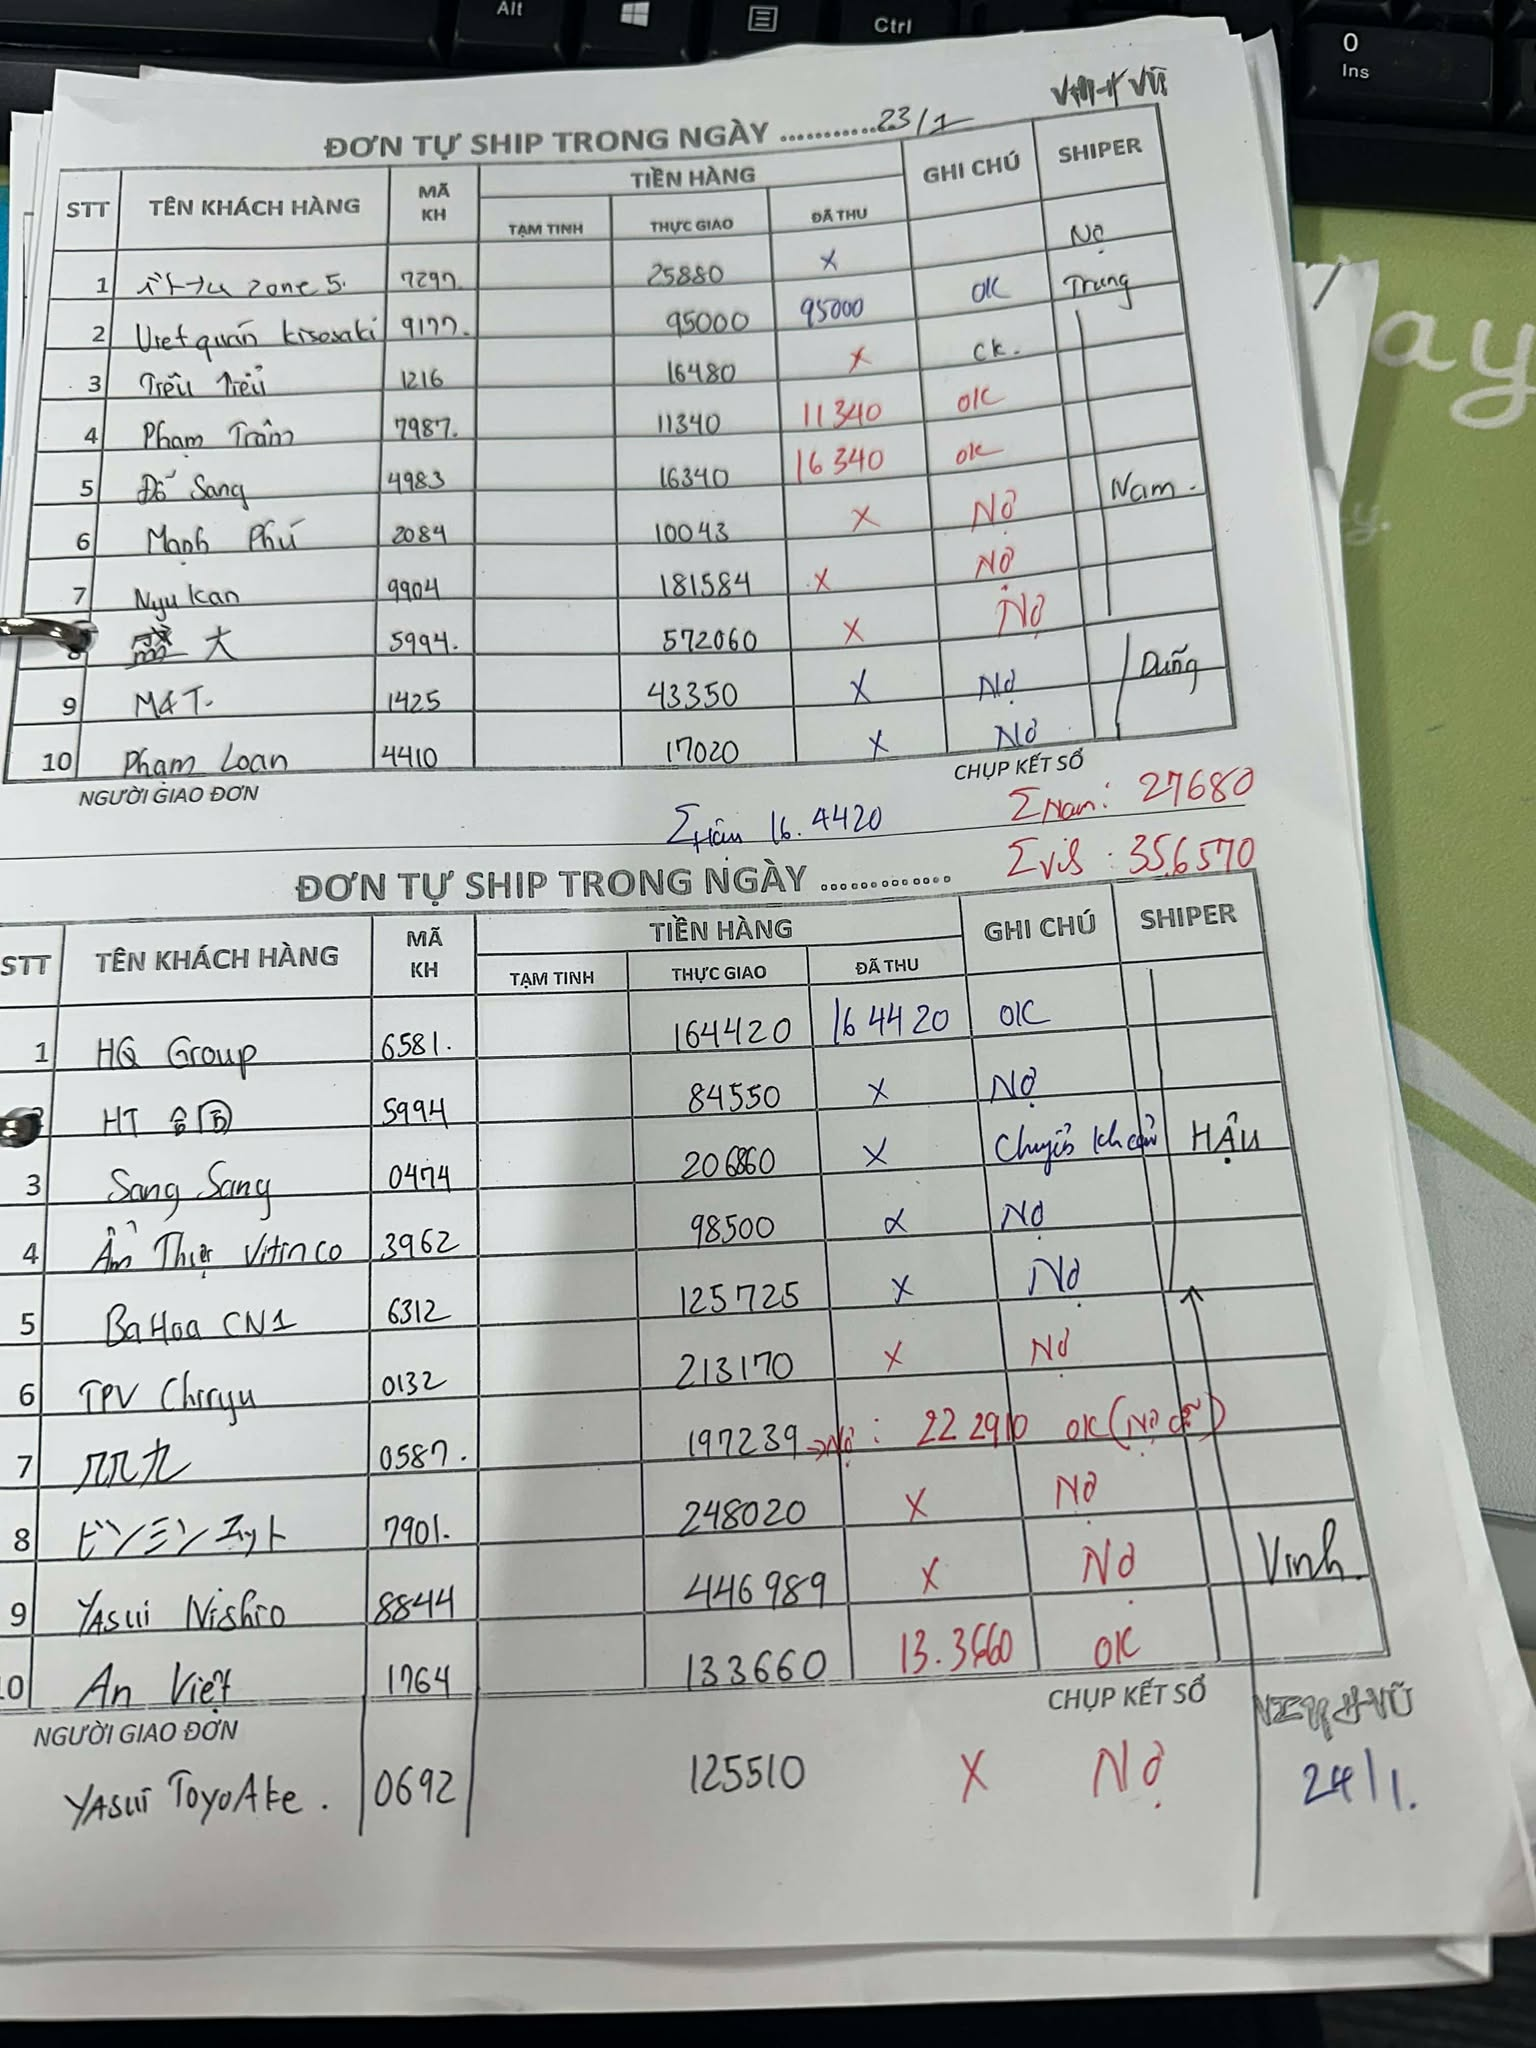 Alt
Ctrl
0
Ins
ay
y.
ĐƠN TỰ SHIP TRONG NGÀY ...........23/1
STT TÊN KHÁCH HÀNG MÃ KH TIỀN HÀNG GHI CHÚ SHIPER
TẠM TINH THỰC GIAO ĐÃ THU
1 zone 5. 7297. 25880 x Nợ
2 Việt quán kisosaki 9177. 95000 95000 OK Trung
3 Trều Trểu 1216 16480 x ck.
4 Phạm Trâm 7987. 11340 11340 OK
5 Đố Sang 4983 16340 16340 ok
6 Mạnh Phú 2084 10043 x Nợ Nam.
7 Nyukan 9904 181584 x Nợ
8 盛大 5994. 572060 x Nợ
9 M&T. 1425 43350 x Nợ Dũng
10 Phạm Loan 4410 17020 x Nợ
NGƯỜI GIAO ĐƠN CHỤP KẾT SỔ
Σ Hậu 16.4420 Σ Nam: 27680
Σ : 356570
ĐƠN TỰ SHIP TRONG NGÀY .............
STT TÊN KHÁCH HÀNG MÃ KH TIỀN HÀNG GHI CHÚ SHIPER
TẠM TINH THỰC GIAO ĐÃ THU
1 HQ Group 6581. 164420 164420 OK
HT 合同 5994 84550 x Nợ
3 Sang Sang 0474 206860 x Chuyển khoản HẬU
4 Ẩm Thực Vitinco 3962 98500 x Nợ
5 Ba Hoa CN1 6312 125725 x Nợ
6 TPV Chiryu 0132 213170 x Nợ
7 0587. 197239 → Nợ : 222910 OK (Nợ cũ)
8 ビンミンエット 7901. 248020 x Nợ
9 YAsui Nishio 8844 446989 x Nợ Vinh.
10 An Việt 1764 133660 13.3660 OK
NGƯỜI GIAO ĐƠN CHỤP KẾT SỔ
YAsui ToyoAke. 0692 125510 x Nợ 24/1.